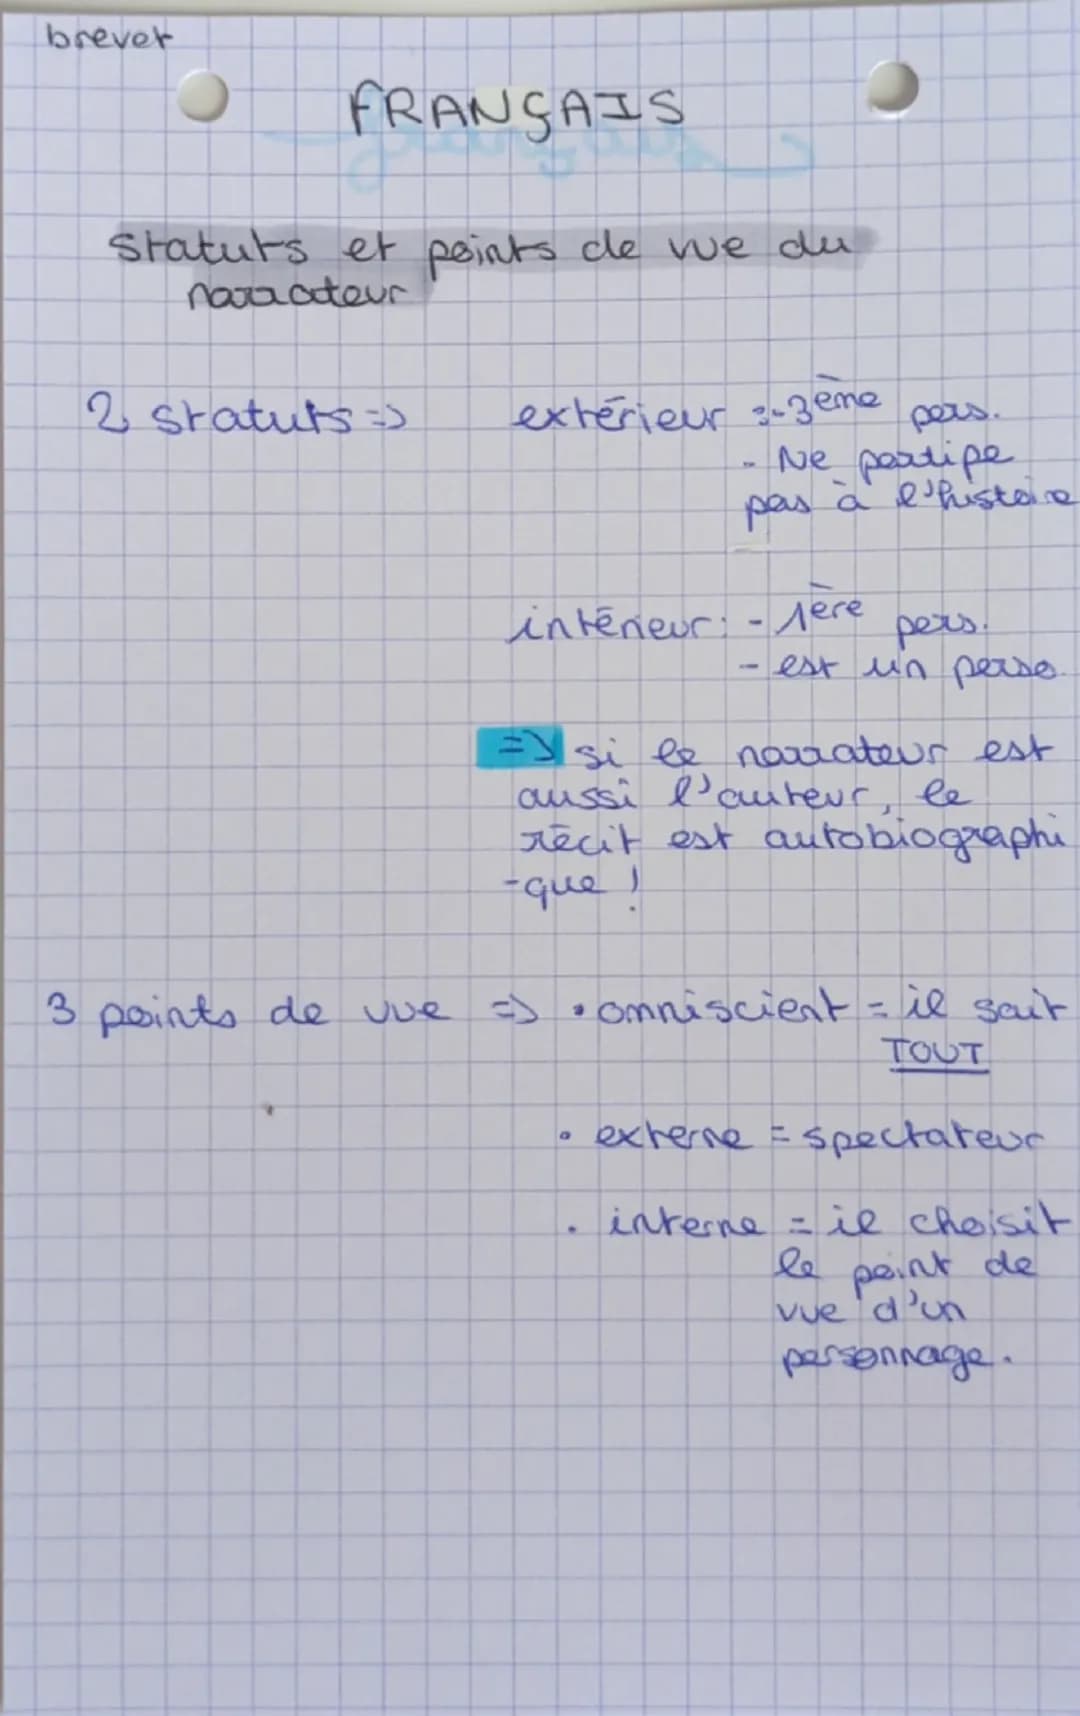 brevet
FRANÇAIS
Statuts et points de vue du
narrateur
2 statuts => extérieur :-3ème pers.
- Ne partipe
pas à l'histoire
intérieur: - 1ère pers.
- est un perso.
=> si le narrateur est
aussi l'auteur, le
récit est autobiographi
-que !
3 points de vue => • omniscient = il sait
TOUT
• externe = spectateur
• interne = il choisit
le point de
vue d'un
personnage.